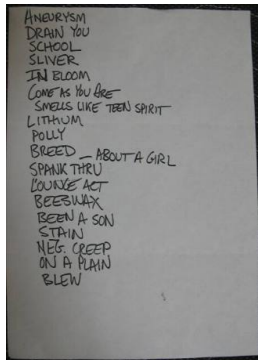 ANEURYSM
DRAIN YOU
SCHOOL
SLIVER
IN BLOOM
COME AS YOU ARE
SMELLS LIKE TEEN SPIRIT
LITHIUM
POLLY
BREED — ABOUT A GIRL
SPANK THRU
LOUNGE ACT
BEESWAX
BEEN A SON
STAIN
NEG. CREEP
ON A PLAIN
BLEW